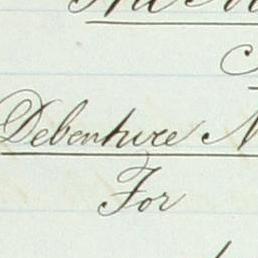 Debenture N
For